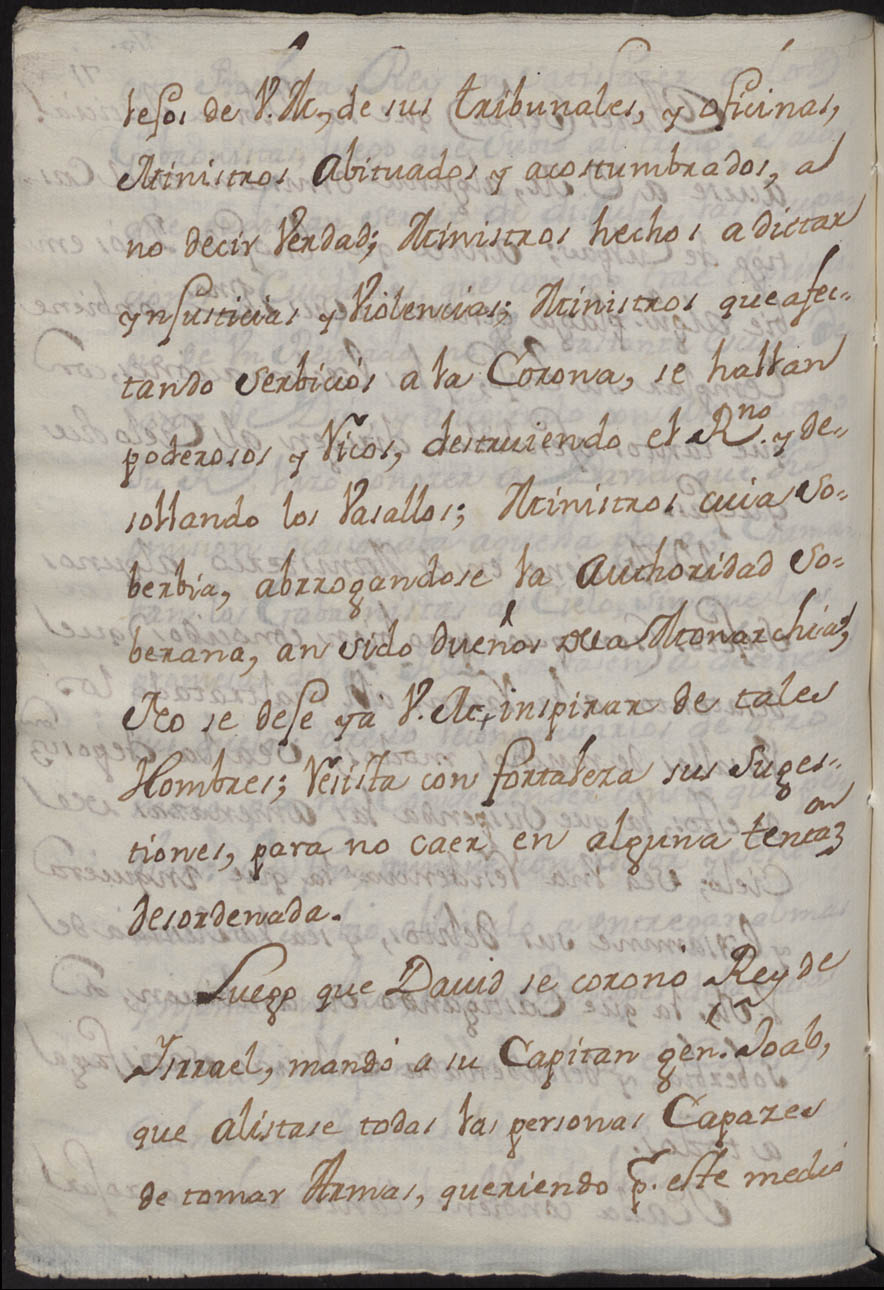 lejos de V.M., de sus tribunales, y oficinas,
Ministros Abituados y acostumbrados, a
no decir Verdad; Ministros hechos a dictar
ynjusticias y Violencias; Ministros que afec-
tando Serbicios a la Corona, se hallan
poderosos y Ricos, destruiendo el R.no y de-
sollando los Vasallos; Ministros cuia So-
berbia, abrrogandose la Authoridad So-
berana, an sido dueños de la Monarchia;
No se deje ya V.M. inspirar de tales
Hombres; Resista con fortaleza sus Suges-
tiones, para no caer en alguna tentaz.on
desordenada.
Luego que David se coronó Rey de
Isrrael, mandó a su Capitan gen.l Joab,
que alistase todas las personas Capazes
de tomar Armas, queriendo p.r este medio